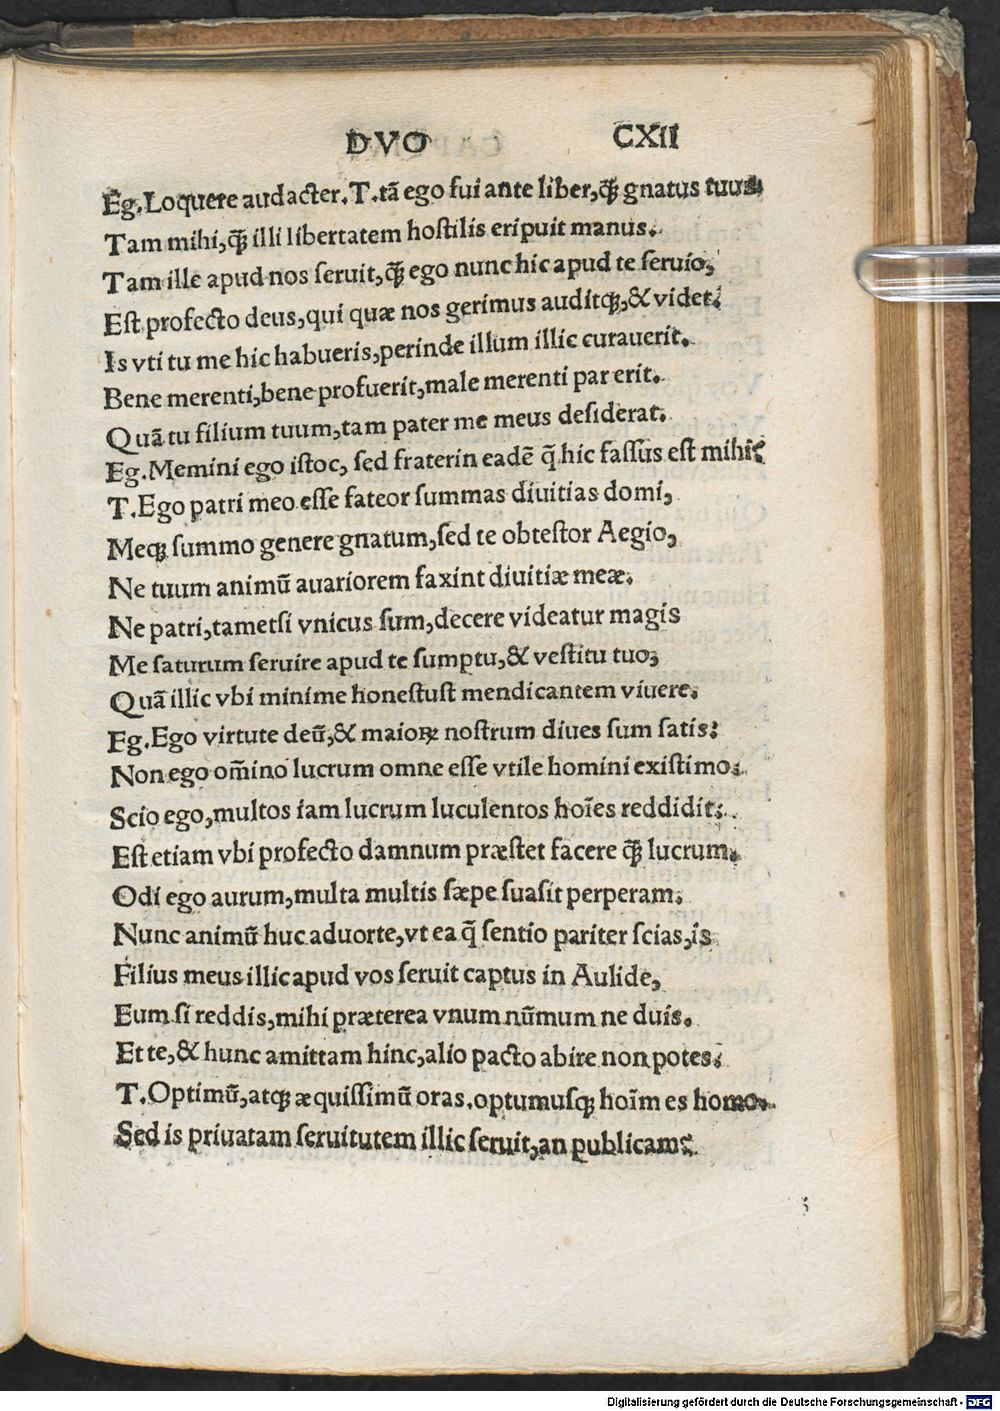 DVO CXII
Eg. Loquere audacter. T. tã ego fui ante liber, q̃ʒ gnatus tuus
Tam mihi, q̃ʒ illi libertatem hoſtilis eripuit manus.
Tam ille apud nos ſeruit, q̃ʒ ego nunc hic apud te ſeruio,
Eſt profecto deus, qui quæ nos gerimus auditqʒ, & videt:
Is vti tu me hic habueris, perinde illum illic curauerit.
Bene merenti, bene profuerit, male merenti par erit.
Quã tu filium tuum, tam pater me meus deſiderat.
Eg. Memini ego iſtoc, ſed fraterin eadē q̃ hic faſſus eſt mihi?
T. Ego patri meo eſſe fateor ſummas diuitias domi,
Meqʒ ſummo genere gnatum, ſed te obteſtor Aegio,
Ne tuum animũ auariorem faxint diuitiæ meæ:
Ne patri, tametſi vnicus ſum, decere videatur magis
Me ſaturum ſeruire apud te ſumptu, & veſtitu tuo,
Quã illic vbi minime honeſtuſt mendicantem viuere.
Eg. Ego virtute deũ, & maioꝝ noſtrum diues ſum ſatis:
Non ego om̃ino lucrum omne eſſe vtile homini exiſtimo:
Scio ego, multos iam lucrum luculentos hoĩes reddidit:
Eſt etiam vbi profecto damnum præſtet facere q̃ʒ lucrum.
Odi ego aurum, multa multis ſæpe ſuaſit perperam.
Nunc animũ huc aduorte, vt ea q̃ ſentio pariter ſcias, is
Filius meus illic apud vos ſeruit captus in Aulide,
Eum ſi reddis, mihi præterea vnum nũmum ne duis.
Et te, & hunc amittam hinc, alio pacto abire non potes:
T. Optimũ, atqʒ æquiſſimũ oras. optumuſqʒ hoĩm es homo.
Sed is priuatam ſeruitutem illic ſeruit, an publicam?
Digitalisierung gefördert durch die Deutsche Forschungsgemeinschaft - DFG